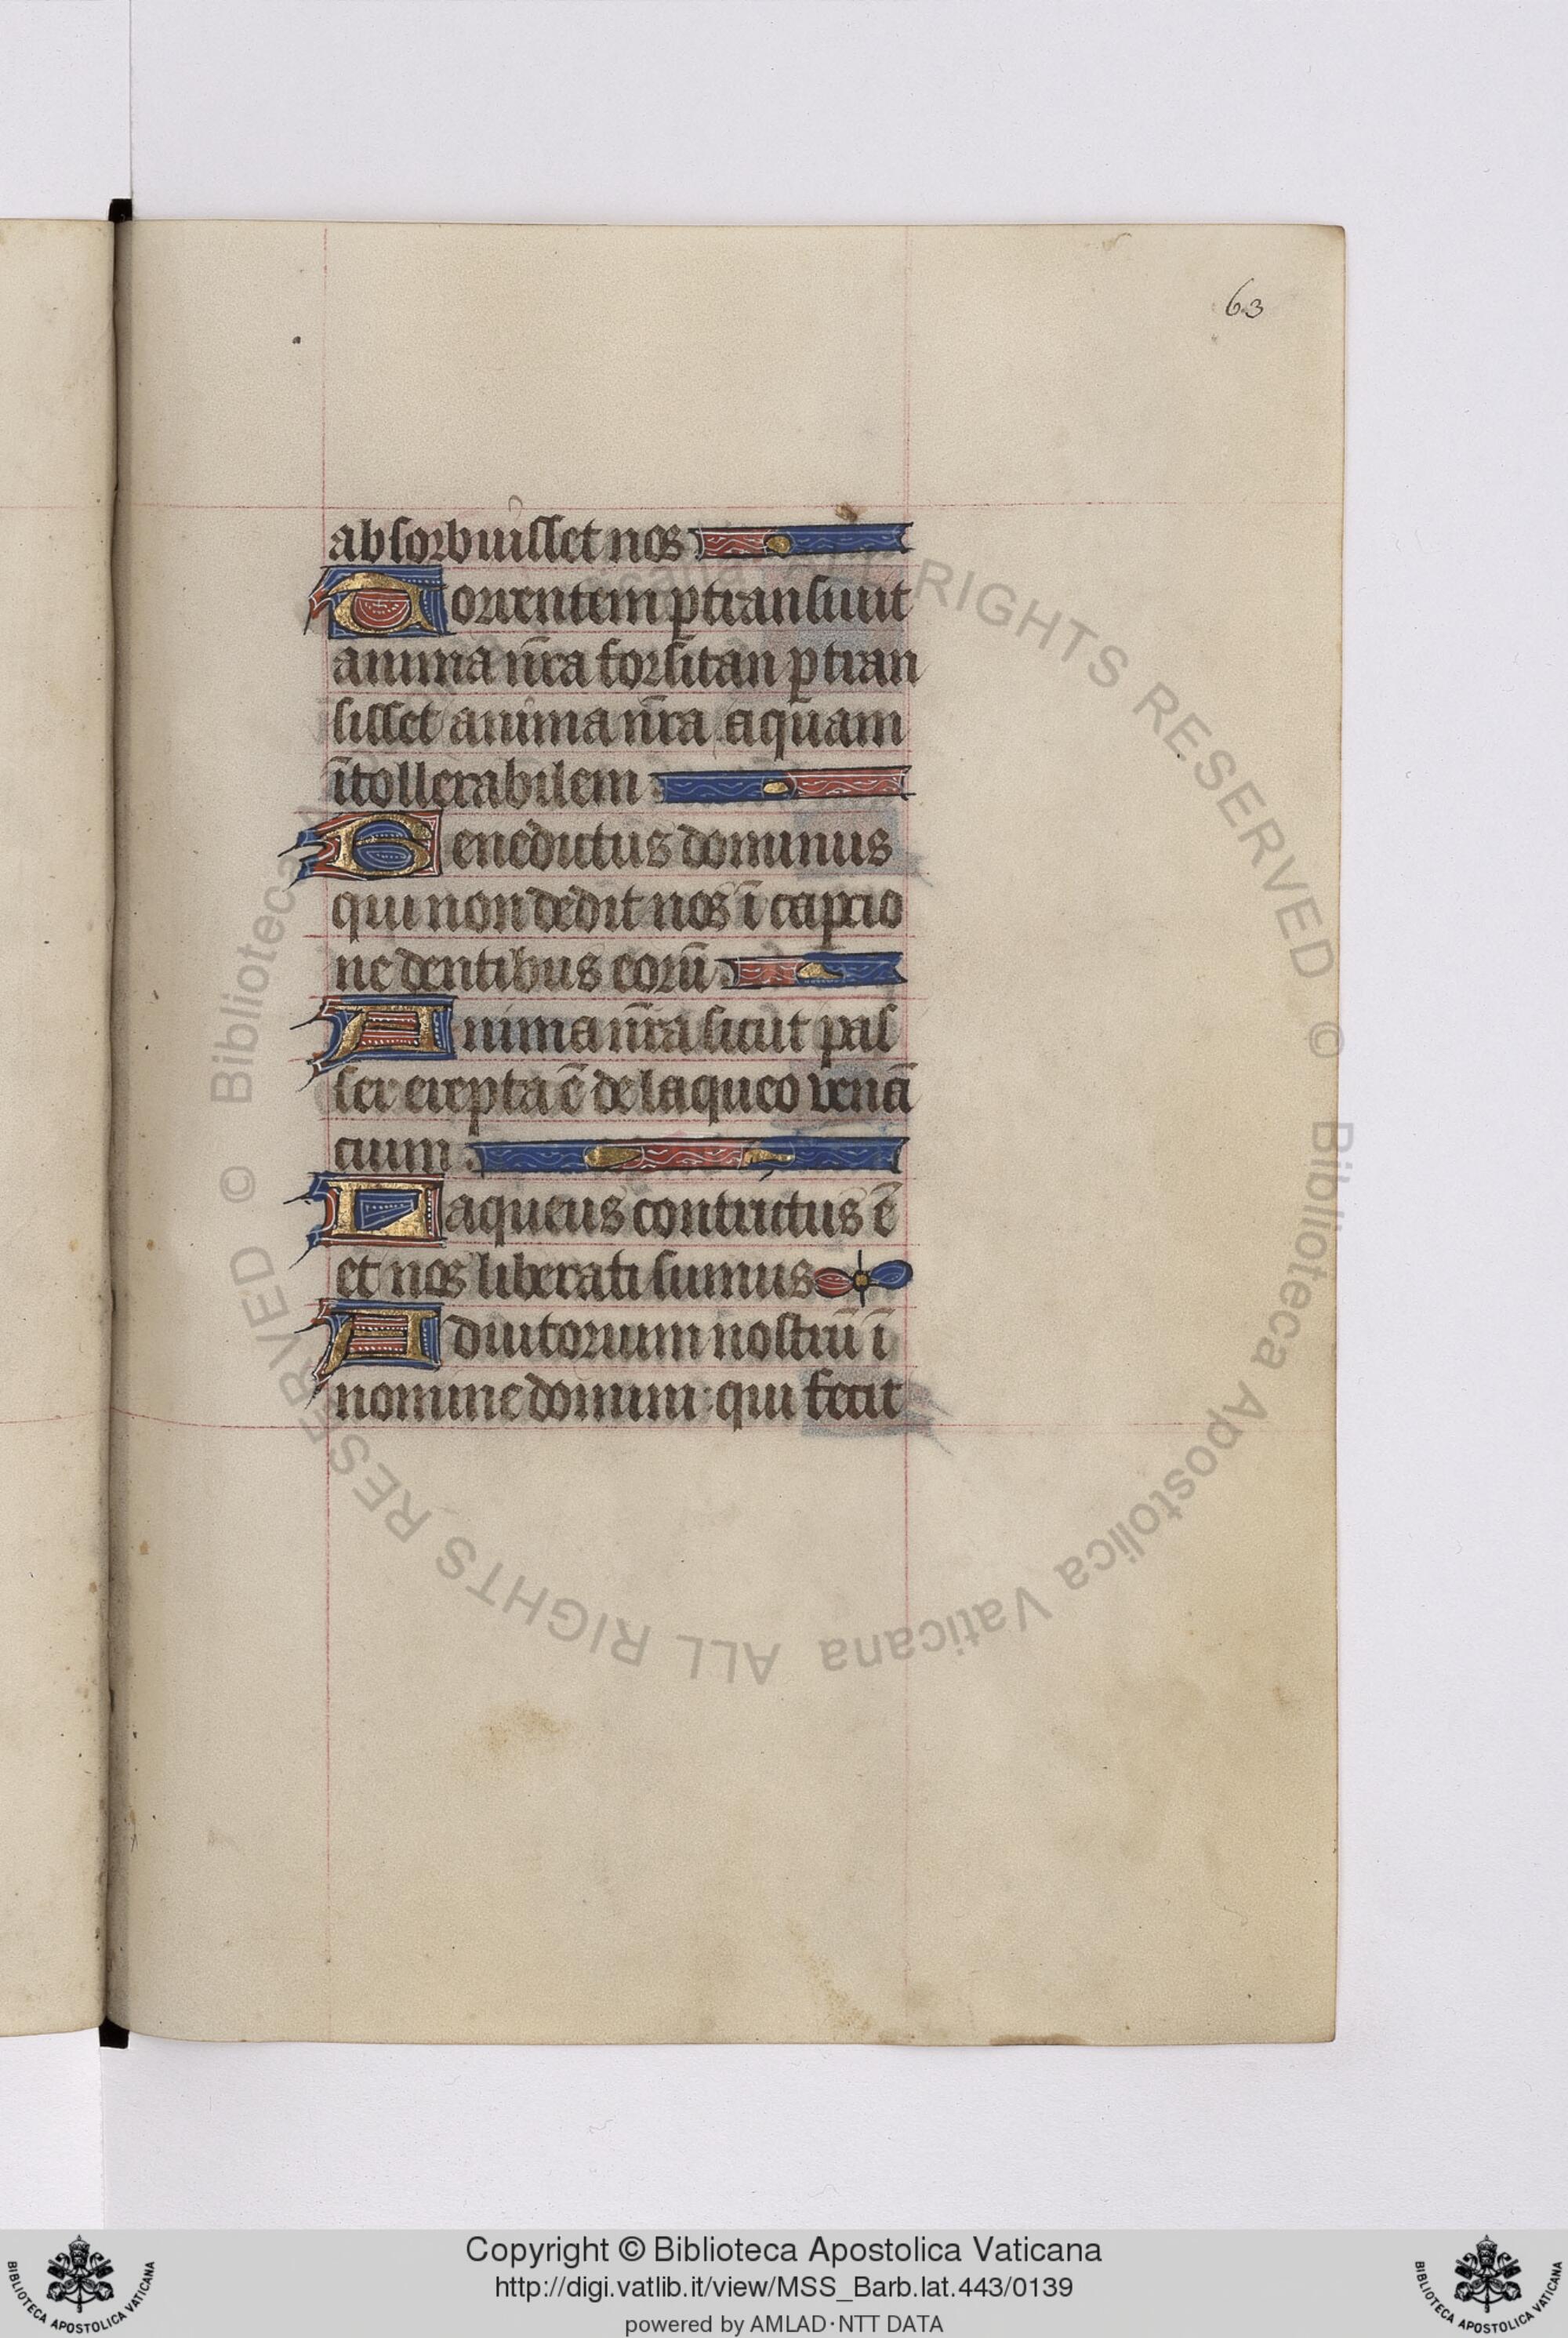 63
absorbuisset nos
Torrentem ꝑtransiuit
anima nr̄a forsitan ꝑtran
sisset anima nr̄a aquam
ītollerabilem
Benedictus dominus
qui non dedit nos ī capcio
ne dentibus eorū
Anima nr̄a sicut pas
ser erepta ē de laqueo uenā
cium
Laqueus contrictus ē
et nos liberati sumus
Adiutorium nostrū ī
nomine domini: qui fecit
© Biblioteca Apostolica Vaticana ALL RIGHTS RESERVED © Biblioteca Apostolica Vaticana ALL RIGHTS RESERVED
Copyright © Biblioteca Apostolica Vaticana
http://digi.vatlib.it/view/MSS_Barb.lat.443/0139
powered by AMLAD·NTT DATA
BIBLIOTECA APOSTOLICA VATICANA
BIBLIOTECA APOSTOLICA VATICANA